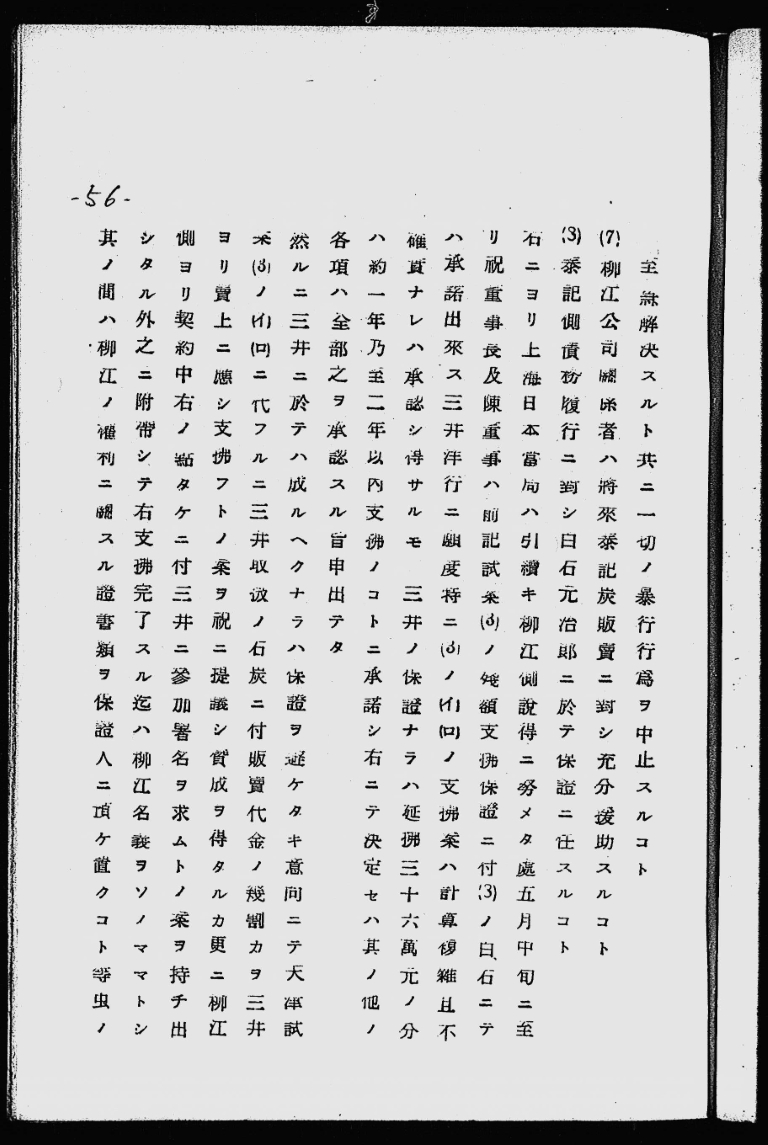 -56-
至急解決スルト共ニ一切ノ暴行行爲ヲ中止スルコト
(7)柳江公司關係者ハ將來泰記炭販賣ニ對シ充分援助スルコト
(8)泰記側債務履行ニ對シ白石元治郎ニ於テ保證ニ任スルコト
右ニヨリ上海日本當局ハ引續キ柳江側說得ニ努メタ處五月中旬ニ至
リ祝董事長及陳董事ハ前記試案(3)ノ殘額支拂保證ニ付(3)ノ白石ニテ
ハ承諾出來ス三井洋行ニ願度特ニ(3)ノ(イ)(ロ)ノ支拂案ハ計算複雜且不
確實ナレハ承認シ得サルモ　三井ノ保證ナラハ延拂三十六萬元ノ分
ハ約一年乃至二年以內支拂ノコトニ承諾シ右ニテ決定セハ其ノ他ノ
各項ハ全部之ヲ承認スル旨申出テタ
然ルニ三井ニ於テハ成ルヘクナラハ保證ヲ避ケタキ意向ニテ天津試
案(3)ノ(イ)(ロ)ニ代フルニ三井取扱ノ石炭ニ付販賣代金ノ幾割カヲ三井
ヨリ賣上ニ應シ支拂フトノ案ヲ祝ニ提議シ賛成ヲ得タルカ更ニ柳江
側ヨリ契約中右ノ點タケニ付三井ニ參加署名ヲ求ムトノ案ヲ持チ出
シタル外之ニ附帶シテ右支拂完了スル迄ハ柳江名義ヲソノママトシ
其ノ間ハ柳江ノ權利ニ關スル證書類ヲ保證人ニ頂ケ置クコト等虫ノ